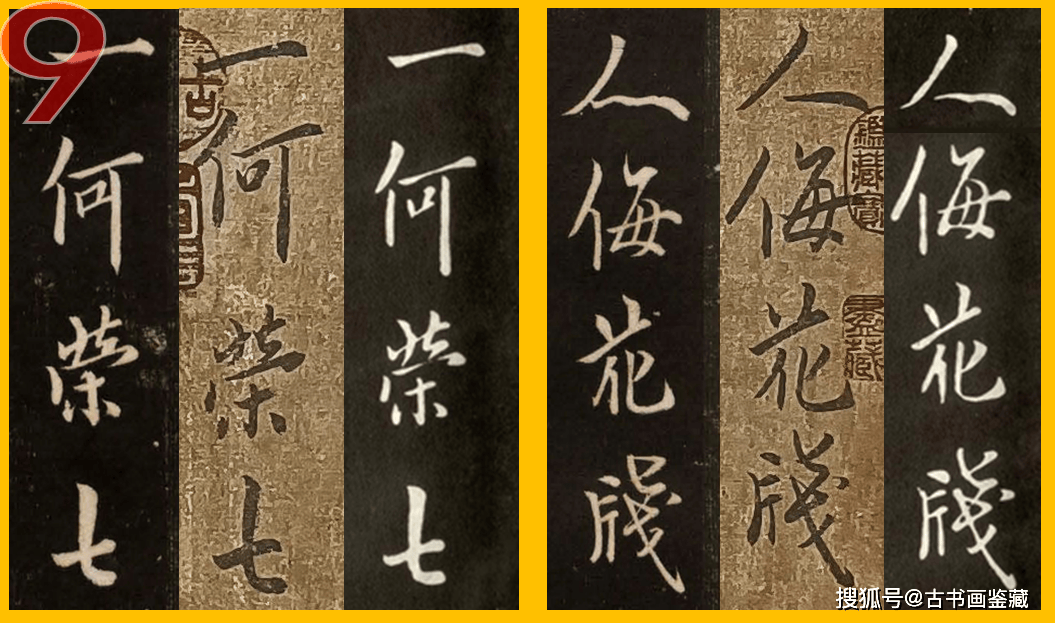 9
一何榮七
一何榮七
一何榮七
人侮花牋
人侮花牋
人侮花牋
搜狐号@古书画鉴藏